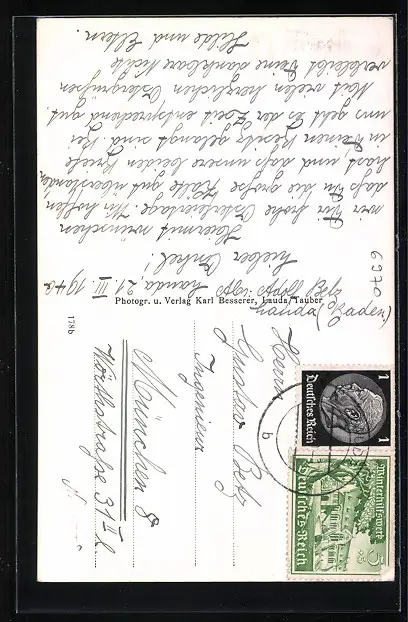 Lauda 21. III. 1940
Lieber Onkel!
Hiermit wünschen
wir Dir frohe Osterfeiertage. Wir hoffen
daß Du die große Kälte gut überstanden
hast und daß unsere beiden Briefe
in Deinen Besitz gelangt sind. Bei
uns geht es der Zeit entsprechend gut.
Mit vielen herzlichen Ostergrüßen
verbleibt Deine dankbare Nichte
Hilde und Eltern.
Photogr. u. Verlag Karl Besserer, Lauda/Tauber
178b
0659
Lauda (Baden)
Herrn
Gustav Betz
Ingenieur
München 8
Wörthstraße 31 II l.
Deutsches Reich
1 1
b
Winterhilfswerk
5
Deutsches Reich